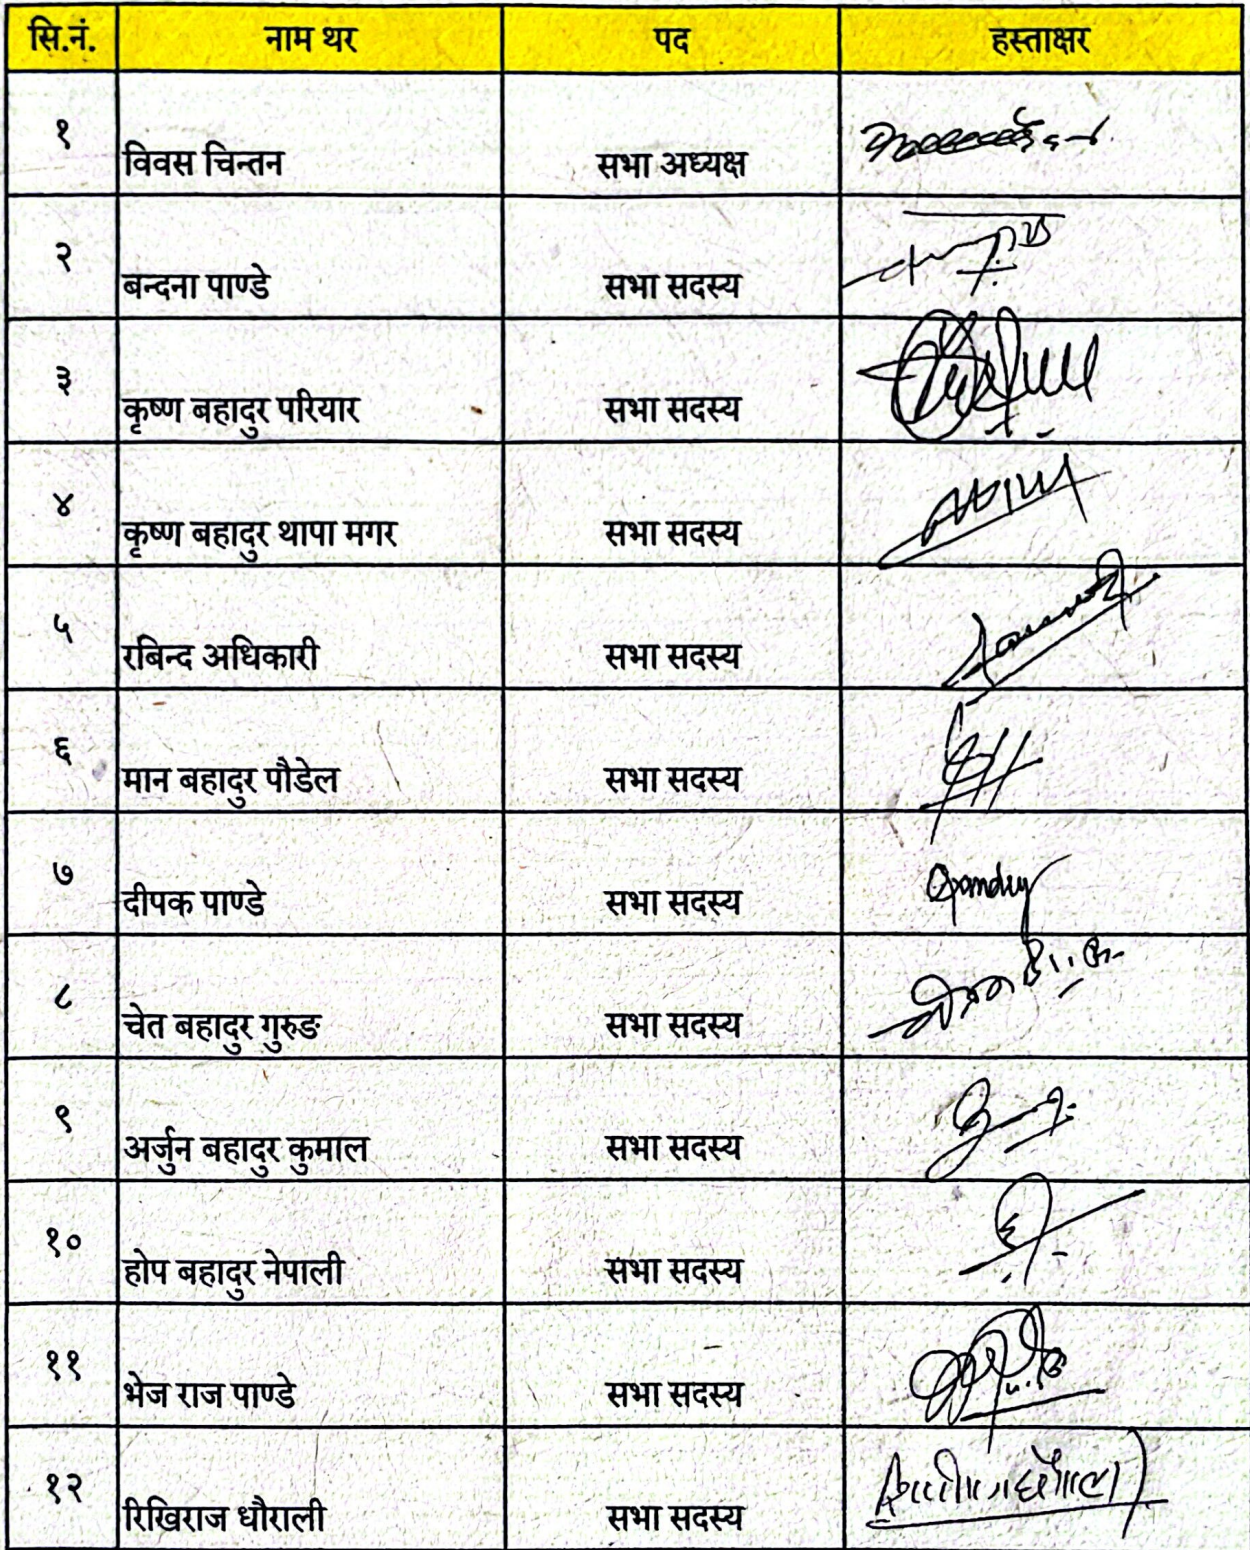 सि.नं. नाम थर पद हस्ताक्षर
१ विवस चिन्तन सभा अध्यक्ष
२ बन्दना पाण्डे सभा सदस्य
३ कृष्ण बहादुर परियार सभा सदस्य
४ कृष्ण बहादुर थापा मगर सभा सदस्य
५ रबिन्द अधिकारी सभा सदस्य
६ मान बहादुर पौडेल सभा सदस्य
७ दीपक पाण्डे सभा सदस्य
८ चेत बहादुर गुरुङ सभा सदस्य
९ अर्जुन बहादुर कुमाल सभा सदस्य
१० होप बहादुर नेपाली सभा सदस्य
११ भेज राज पाण्डे सभा सदस्य
१२ रिखिराज धौराली सभा सदस्य